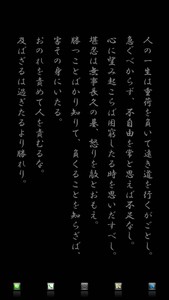 人の一生は重荷を負いて遠き道を行くがごとし。
急ぐべからず、不自由を常と思えば不足なし。
心に望み起こらば困窮したる時を思いだすべし。
堪忍は無事長久の基、怒りを敵とおもえ。
勝つことばかり知りて、負くることを知らざば、
害その身にいたる。
おのれを責めて人を責むるな。
及ばざるは過ぎたるより勝れり。